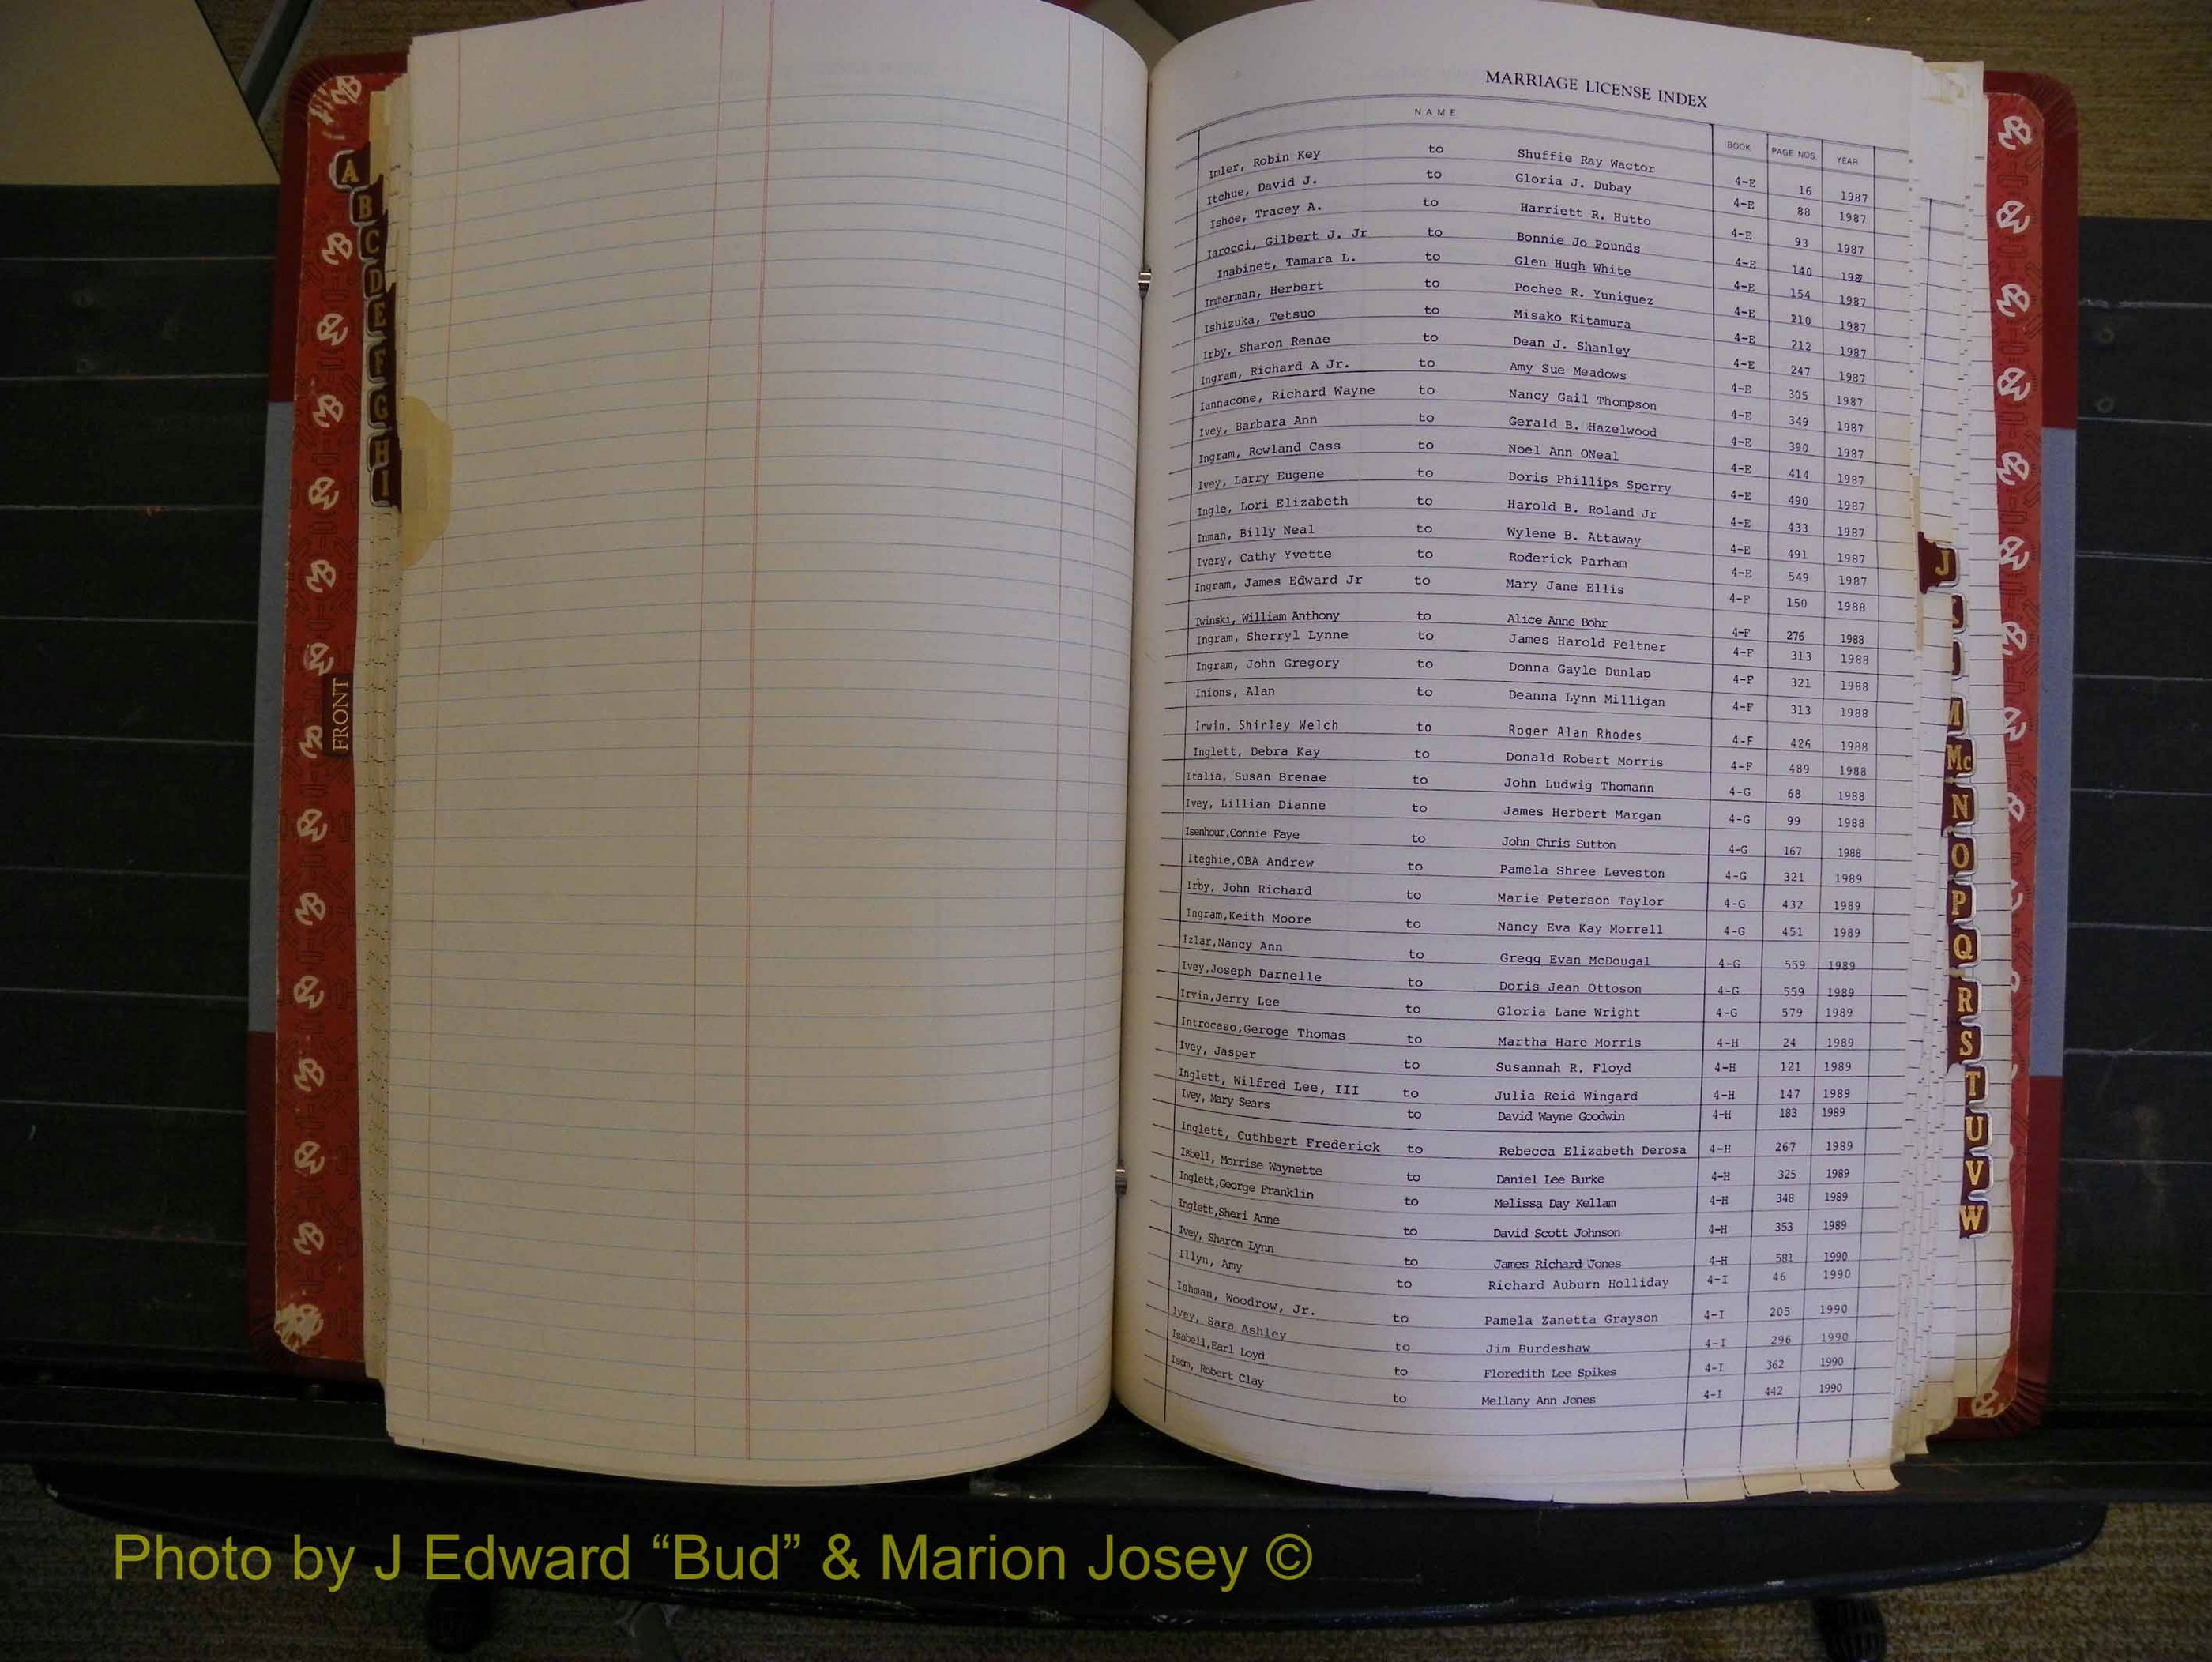 MARRIAGE LICENSE INDEX
NAME BOOK PAGE NOS. YEAR
Imler, Robin Key to Shuffie Ray Wactor 4-E 16 1987
Itchue, David J. to Gloria J. Dubay 4-E 88 1987
Ishee, Tracey A. to Harriett R. Hutto 4-E 93 1987
Iarocci, Gilbert J. Jr to Bonnie Jo Pounds 4-E 140 198
Inabinet, Tamara L. to Glen Hugh White 4-E 154 1987
Immerman, Herbert to Pochee R. Yuniguez 4-E 210 1987
Ishizuka, Tetsuo to Misako Kitamura 4-E 212 1987
Irby, Sharon Renae to Dean J. Shanley 4-E 247 1987
Ingram, Richard A Jr. to Amy Sue Meadows 4-E 305 1987
Iannacone, Richard Wayne to Nancy Gail Thompson 4-E 349 1987
Ivey, Barbara Ann to Gerald B. Hazelwood 4-E 390 1987
Ingram, Rowland Cass to Noel Ann ONeal 4-E 414 1987
Ivey, Larry Eugene to Doris Phillips Sperry 4-E 490 1987
Ingle, Lori Elizabeth to Harold B. Roland Jr 4-E 433 1987
Inman, Billy Neal to Wylene B. Attaway 4-E 491 1987
Ivery, Cathy Yvette to Roderick Parham 4-E 549 1987
Ingram, James Edward Jr to Mary Jane Ellis 4-F 150 1988
Iwinski, William Anthony to Alice Anne Bohr 4-F 276 1988
Ingram, Sherryl Lynne to James Harold Feltner 4-F 313 1988
Ingram, John Gregory to Donna Gayle Dunlap 4-F 321 1988
Inions, Alan to Deanna Lynn Milligan 4-F 313 1988
Irwin, Shirley Welch to Roger Alan Rhodes 4-F 426 1988
Inglett, Debra Kay to Donald Robert Morris 4-F 489 1988
Italia, Susan Brenae to John Ludwig Thomann 4-G 68 1988
Ivey, Lillian Dianne to James Herbert Margan 4-G 99 1988
Isenhour,Connie Faye to John Chris Sutton 4-G 167 1988
Iteghie,OBA Andrew to Pamela Shree Leveston 4-G 321 1989
Irby, John Richard to Marie Peterson Taylor 4-G 432 1989
Ingram,Keith Moore to Nancy Eva Kay Morrell 4-G 451 1989
Izlar,Nancy Ann to Gregg Evan McDougal 4-G 559 1989
Ivey,Joseph Darnelle to Doris Jean Ottoson 4-G 559 1989
Irvin,Jerry Lee to Gloria Lane Wright 4-G 579 1989
Introcaso,Geroge Thomas to Martha Hare Morris 4-H 24 1989
Ivey, Jasper to Susannah R. Floyd 4-H 121 1989
Inglett, Wilfred Lee, III to Julia Reid Wingard 4-H 147 1989
Ivey, Mary Sears to David Wayne Goodwin 4-H 183 1989
Inglett, Cuthbert Frederick to Rebecca Elizabeth Derosa 4-H 267 1989
Isbell, Morrise Waynette to Daniel Lee Burke 4-H 325 1989
Inglett,George Franklin to Melissa Day Kellam 4-H 348 1989
Inglett,Sheri Anne to David Scott Johnson 4-H 353 1989
Ivey, Sharon Lynn to James Richard Jones 4-H 581 1990
Illyn, Amy to Richard Auburn Holliday 4-I 46 1990
Ishman, Woodrow, Jr. to Pamela Zanetta Grayson 4-I 205 1990
Ivey, Sara Ashley to Jim Burdeshaw 4-I 296 1990
Isabell,Earl Loyd to Floredith Lee Spikes 4-I 362 1990
Isom, Robert Clay to Mellany Ann Jones 4-I 442 1990
A
B
C
D
E
F
G
H
I
FRONT
J
M
Mc
N
O
P
Q
R
S
T
U
V
W
Photo by J Edward “Bud” & Marion Josey ©